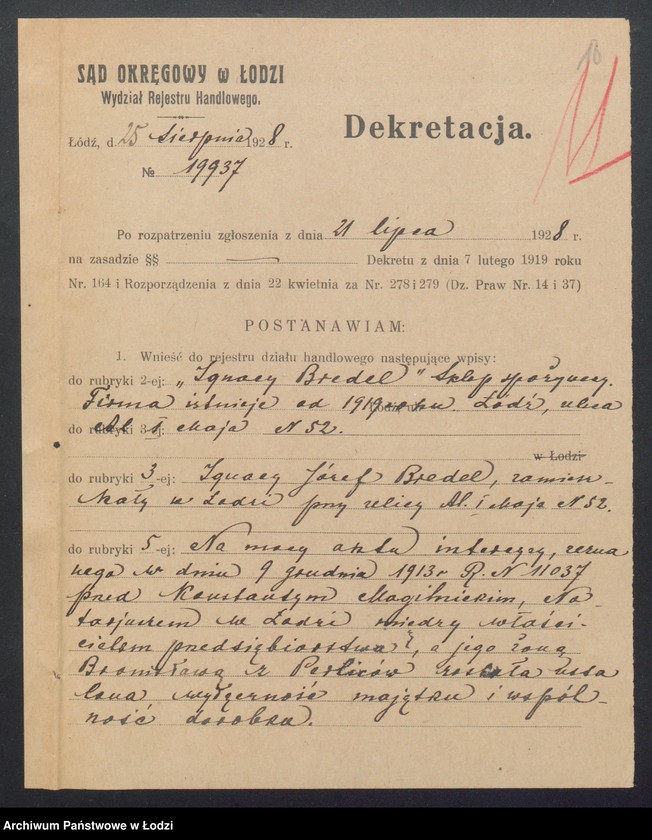 18
SĄD OKRĘGOWY w ŁODZI
Wydział Rejestru Handlowego.
Łódź, d. 25 sierpnia 1928 r.
Dekretacja.
№ 19937
Po rozpatrzeniu zgłoszenia z dnia 21 lipca 1928 r.
na zasadzie §§ — Dekretu z dnia 7 lutego 1919 roku
Nr. 164 i Rozporządzenia z dnia 22 kwietnia za Nr. 278 i 279 (Dz. Praw Nr. 14 i 37)
POSTANAWIAM:
1. Wnieść do rejestru działu handlowego następujące wpisy:
do rubryki 2-ej: „Ignacy Bredel" Sklep spożywczy.
Firma istnieje od 1919 roku. Łódź, ulica
do rubryki 3-ej: Al. 1 Maja N 52.
w Łodzi
do rubryki 3-ej: Ignacy Józef Bredel, zamiesz-
kały w Łodzi przy ulicy Al. 1 Maja N 52.
do rubryki 5-ej: Na mocy aktu intercyzy, zezna
nego w dniu 9 grudnia 1913 r R. N 11037
przed Konstantym Mogilnickim, No-
tarjuszem w Łodzi między właści-
cielem przedsiębiorstwa, a jego żoną
Bronisławą z zostało usta
lona wyłączność majątku i wspól-
ność dorobku.
Archiwum Państwowe w Łodzi